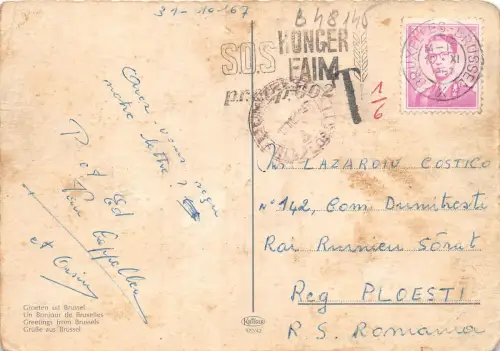 31-10-1967
B 48140
S.O.S HONGER
FAIM
p.r. 802
T
1/6
BRUXELLES BRUSSEL
Avez vous reçu
notre lettre ?
Pot Ed
Van Cappellen
et
Mr LAZARDIU COSTICO
N° 142, Com Dumitresti
Rai Rumieu Sórut
Reg PLOESTI
R S. Romania
Groeten uit Brussel
Un Bonjour de Bruxelles
Greetings from Brussels
Grüße aus Brussel